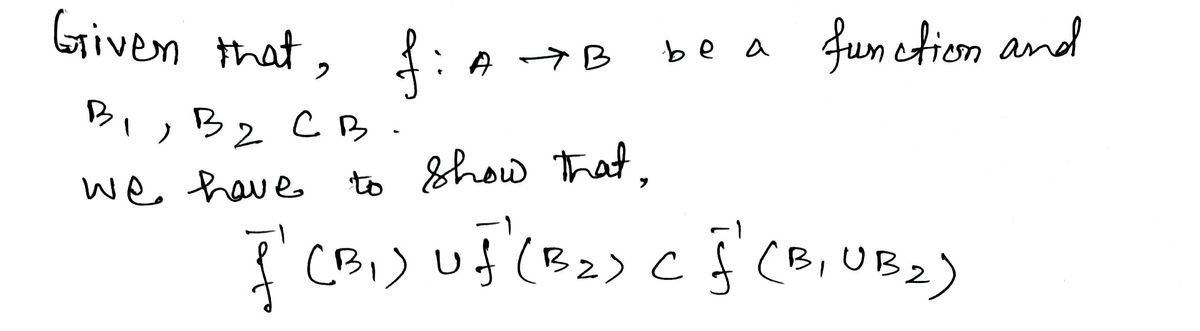 Given that, f: A → B be a function and
B₁, B₂ ⊂ B.
we have to show that,
f⁻¹(B₁) ∪ f⁻¹(B₂) ⊂ f⁻¹(B₁ ∪ B₂)